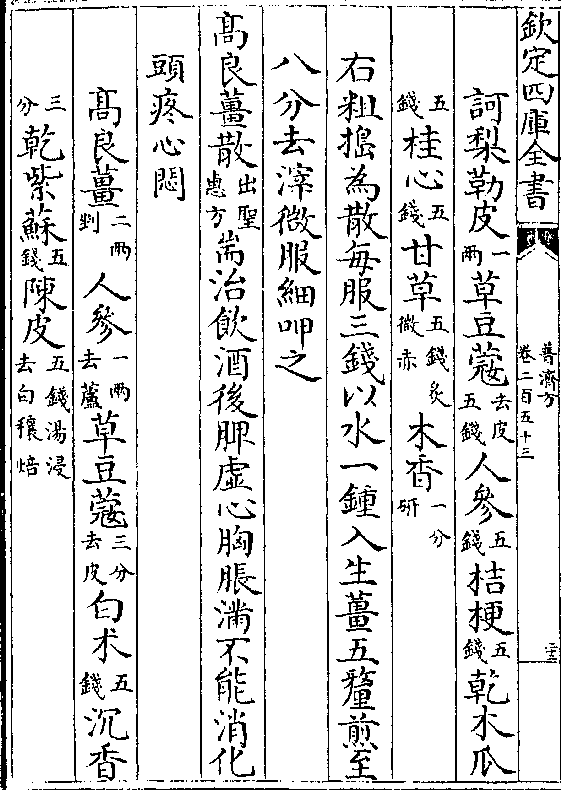 欽定四庫全書
普濟方
卷二百五十三
訶梨勒皮一兩草豆蔻去皮五錢人參五錢桔梗五錢乾木瓜
五錢桂心五錢甘草五錢炙微赤木香一分研
右粗搗為散每服三錢以水一鍾入生薑五釐煎至
八分去滓微服細呷之
髙良薑散出聖惠方耑治飲酒後脾虚心胸脹滿不能消化
頭疼心悶
髙良薑二兩剉人參一兩去蘆草豆蔻三分去皮白术五錢沉香
三分乾紫蘇五錢陳皮五錢湯浸去白穰焙